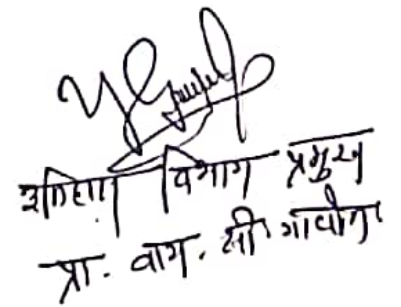 इतिहास विभाग प्रमुख
प्रा. वाय. सी. गावीत